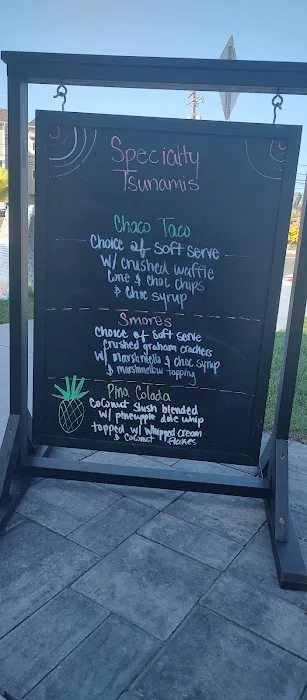 Specialty
Tsunamis
Chaco Taco
Choice of soft serve
w/ crushed waffle
cone & choc chips
& choc syrup
Smores
Choice of soft serve
crushed graham crackers
w/ marshmello & choc syrup
& marshmellow topping
Pina Colada
Coconut slush blended
w/ pineapple dole whip
topped w/ whipped cream
& coconut flakes